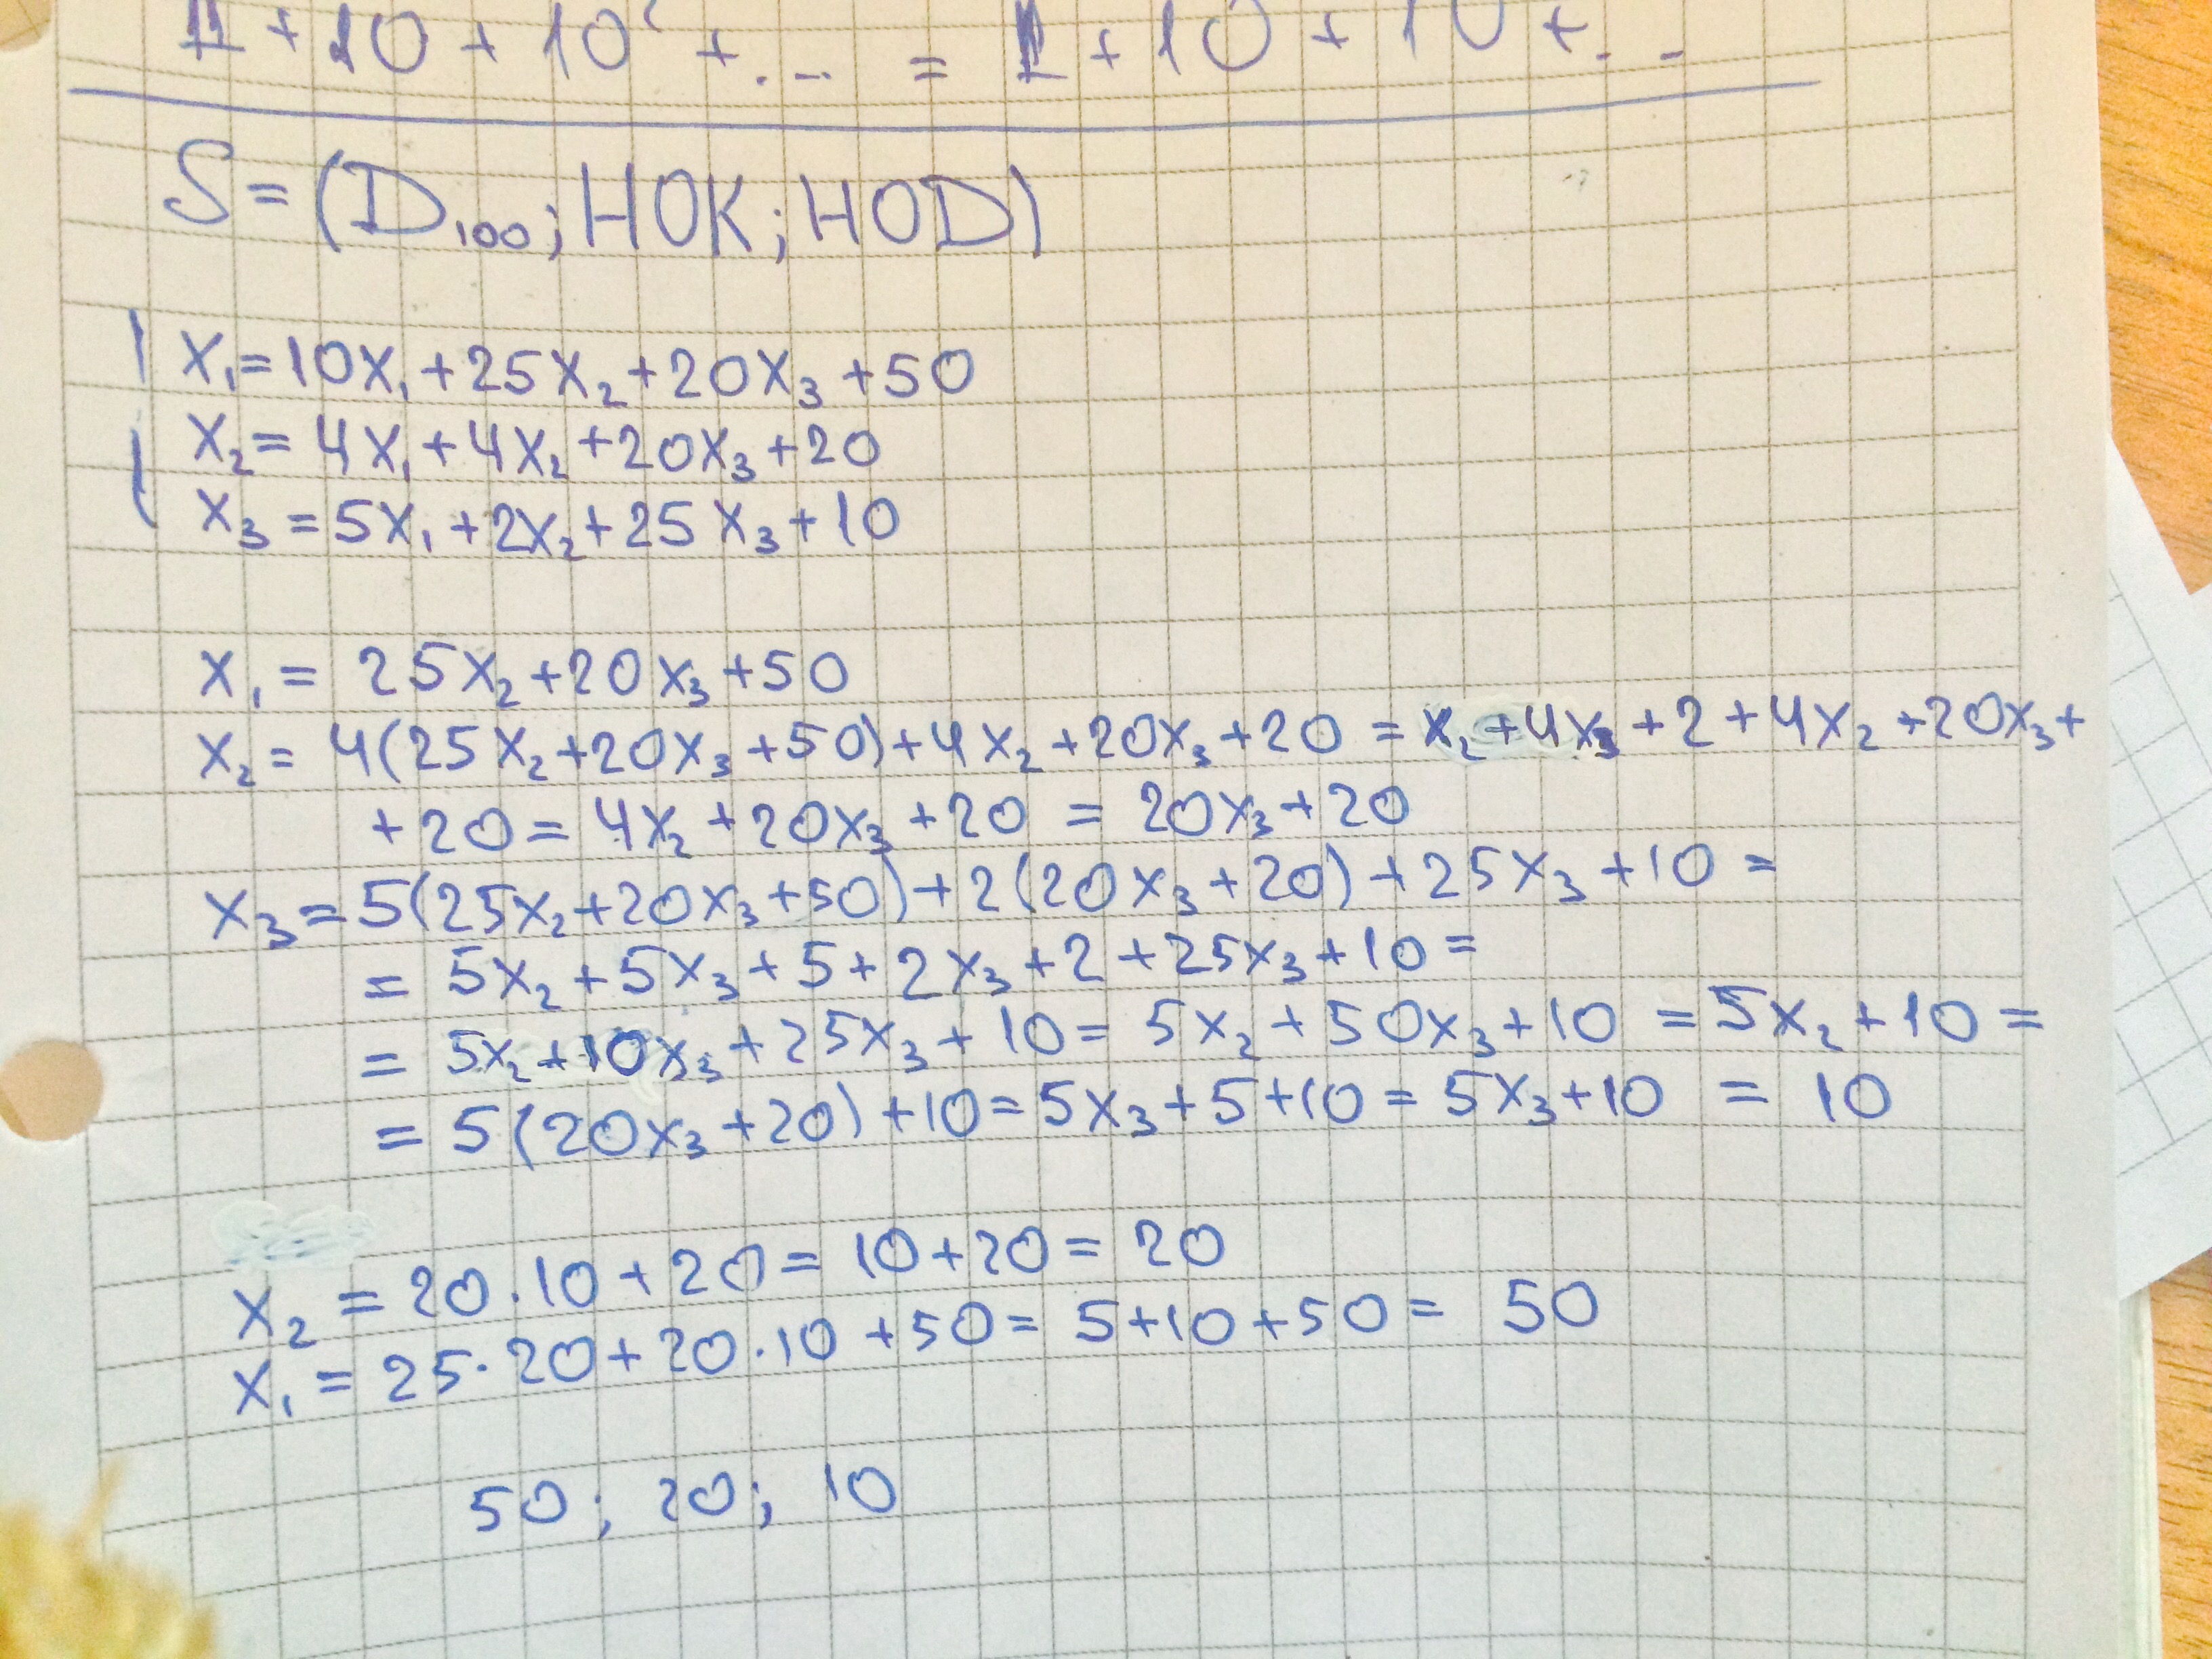 1 + 10 + 10² + ... = 1 + 10 + 10 + ...
S = (D₁₀₀; НОК; НОD)
x₁ = 10x₁ + 25x₂ + 20x₃ + 50
x₂ = 4x₁ + 4x₂ + 20x₃ + 20
x₃ = 5x₁ + 2x₂ + 25x₃ + 10
x₁ = 25x₂ + 20x₃ + 50
x₂ = 4(25x₂ + 20x₃ + 50) + 4x₂ + 20x₃ + 20 = x₂ + 4x₃ + 2 + 4x₂ + 20x₃ +
+ 20 = 4x₂ + 20x₃ + 20 = 20x₃ + 20
x₃ = 5(25x₂ + 20x₃ + 50) + 2(20x₃ + 20) + 25x₃ + 10 =
= 5x₂ + 5x₃ + 5 + 2x₃ + 2 + 25x₃ + 10 =
= 5x₂ + 10x₃ + 25x₃ + 10 = 5x₂ + 50x₃ + 10 = 5x₂ + 10 =
= 5(20x₃ + 20) + 10 = 5x₃ + 5 + 10 = 5x₃ + 10 = 10
x₂ = 20 · 10 + 20 = 10 + 20 = 20
x₁ = 25 · 20 + 20 · 10 + 50 = 5 + 10 + 50 = 50
50; 20; 10